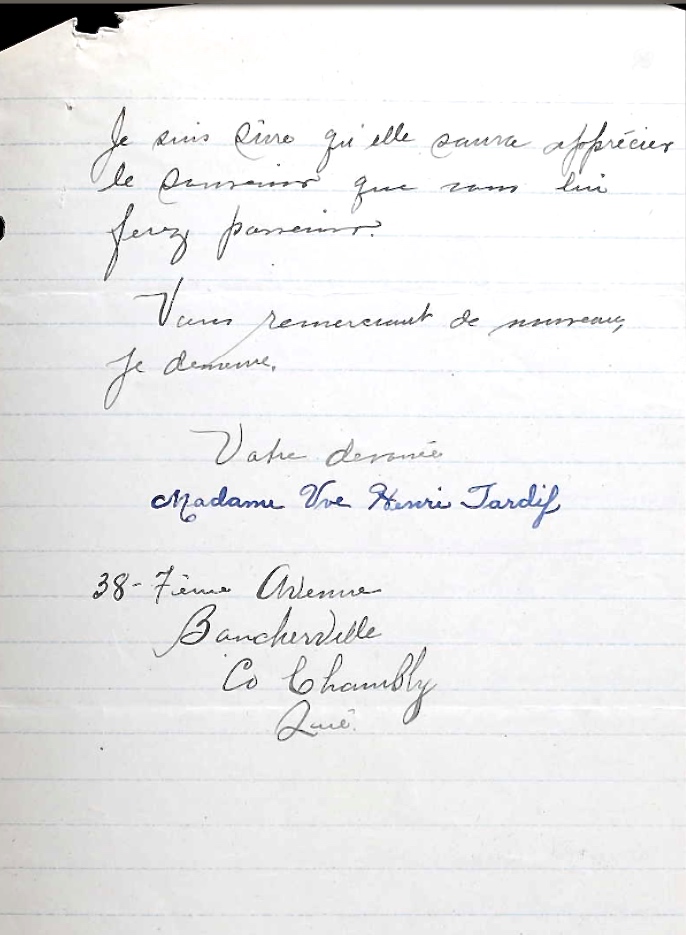 Je suis sûre qu'elle saura apprécier
le souvenir que vous lui
ferez parvenir.
Vous remerciant de nouveau,
je demeure,
Votre dévouée
Madame Vve Henri Tardif
38 - 7ième Avenue
Boucherville
Co Chambly
Qué.